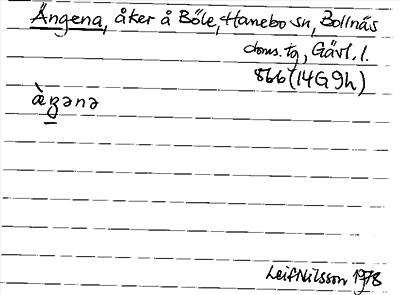 Ängena, åker å Böle, Hanebo sn, Bollnäs
doms.tg, Gävl.l.
866 (14G9h)
ǜŋənə
Leif Nilsson 1978